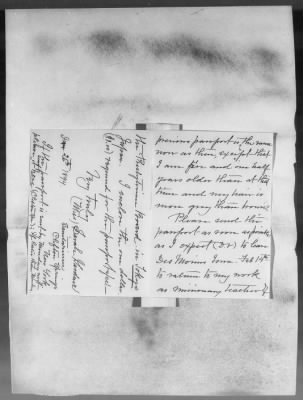 previous passport is the same
now as then, except that
I am five and one half
years older than at that
time and my hair is
more grey than brown.
Please send the
passport as soon as possible
as I expect (D.V.) to leave
Des Moines Iowa Feb 14th
to return to my work
as missionary teacher of
the Presbyterian Board in Tokyo
Japan. I enclose the one dollar
required for the passport fee.
Very truly
(Miss) Sarah
Jan 22d 1894.
Sanitarium
Clifton Springs
New York